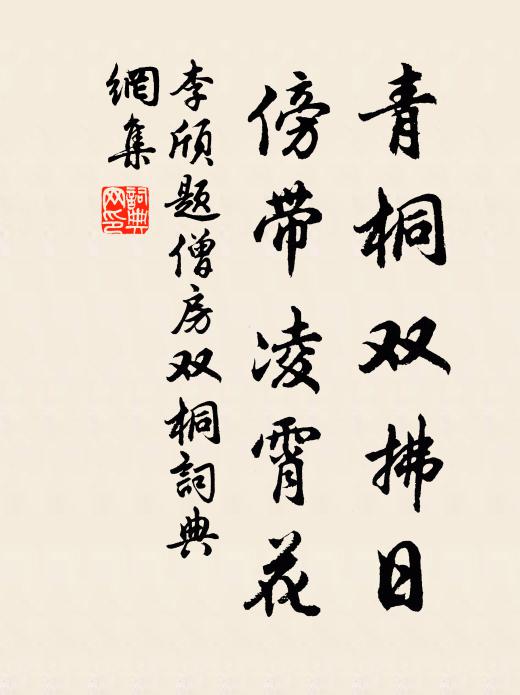 青桐双拂日
傍带凌霄花
李頎题僧房双桐詞典
網集
詞典网印